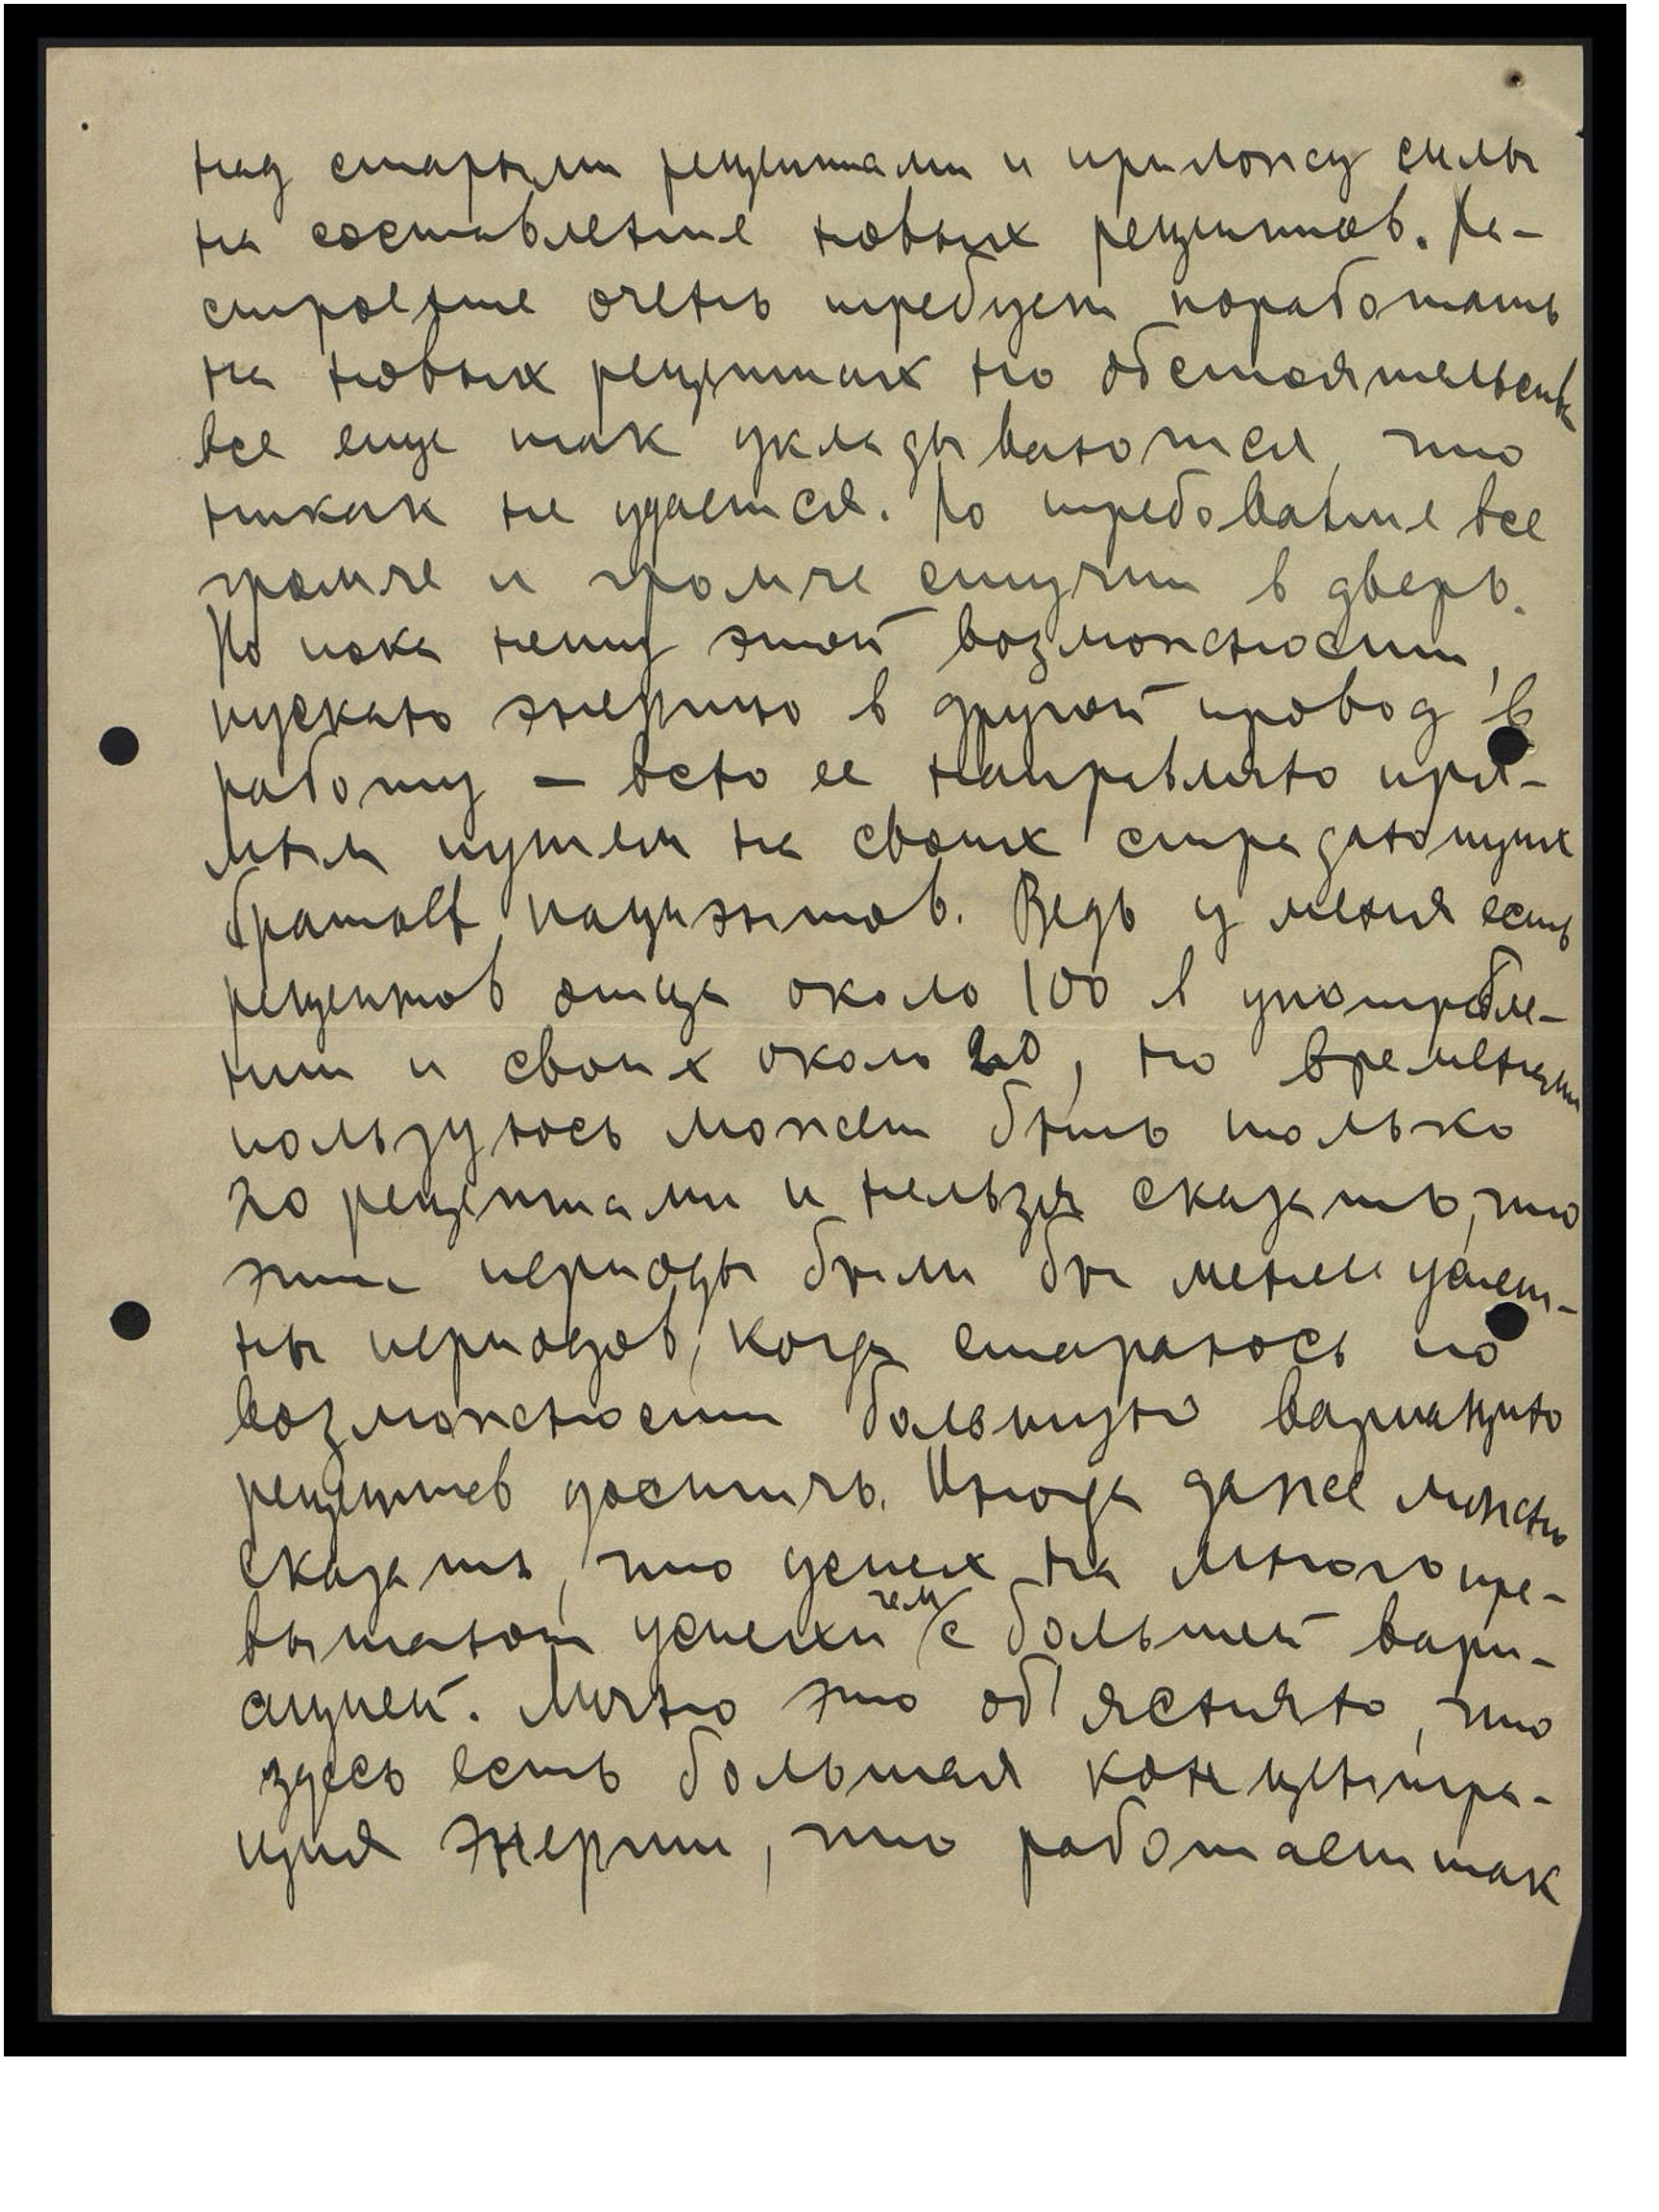 над старыми рецептами и приложу силы
на составление новых рецептов. На-
строение очень требует поработать
на новых рецептах но обстоятельств
все еще так укладываются, что
никак не удается. Но требование все
громче и громче стучит в дверь.
Но пока нету этой возможности,
пускаю энергию в другой провод в
работу – всю ее направляю пря-
мым путем на своих страдающих
братьев пациэнтов. Ведь у меня есть
рецептов отца около 100 в употребле-
нии и своих около 20, но временами
пользуюсь может быть только
20 рецептами и нельзя сказать, что
эти периоды были бы менее успеш-
ны периодов, когда стараюсь по
возможности большую вариацию
рецептов достичь. Иногда даже можно
сказать, что успех на много пре-
вышают успехи чем с большей вари-
ацией. Лично это об'ясняю, что
здесь есть большая концентра-
ция энергии, что работает так